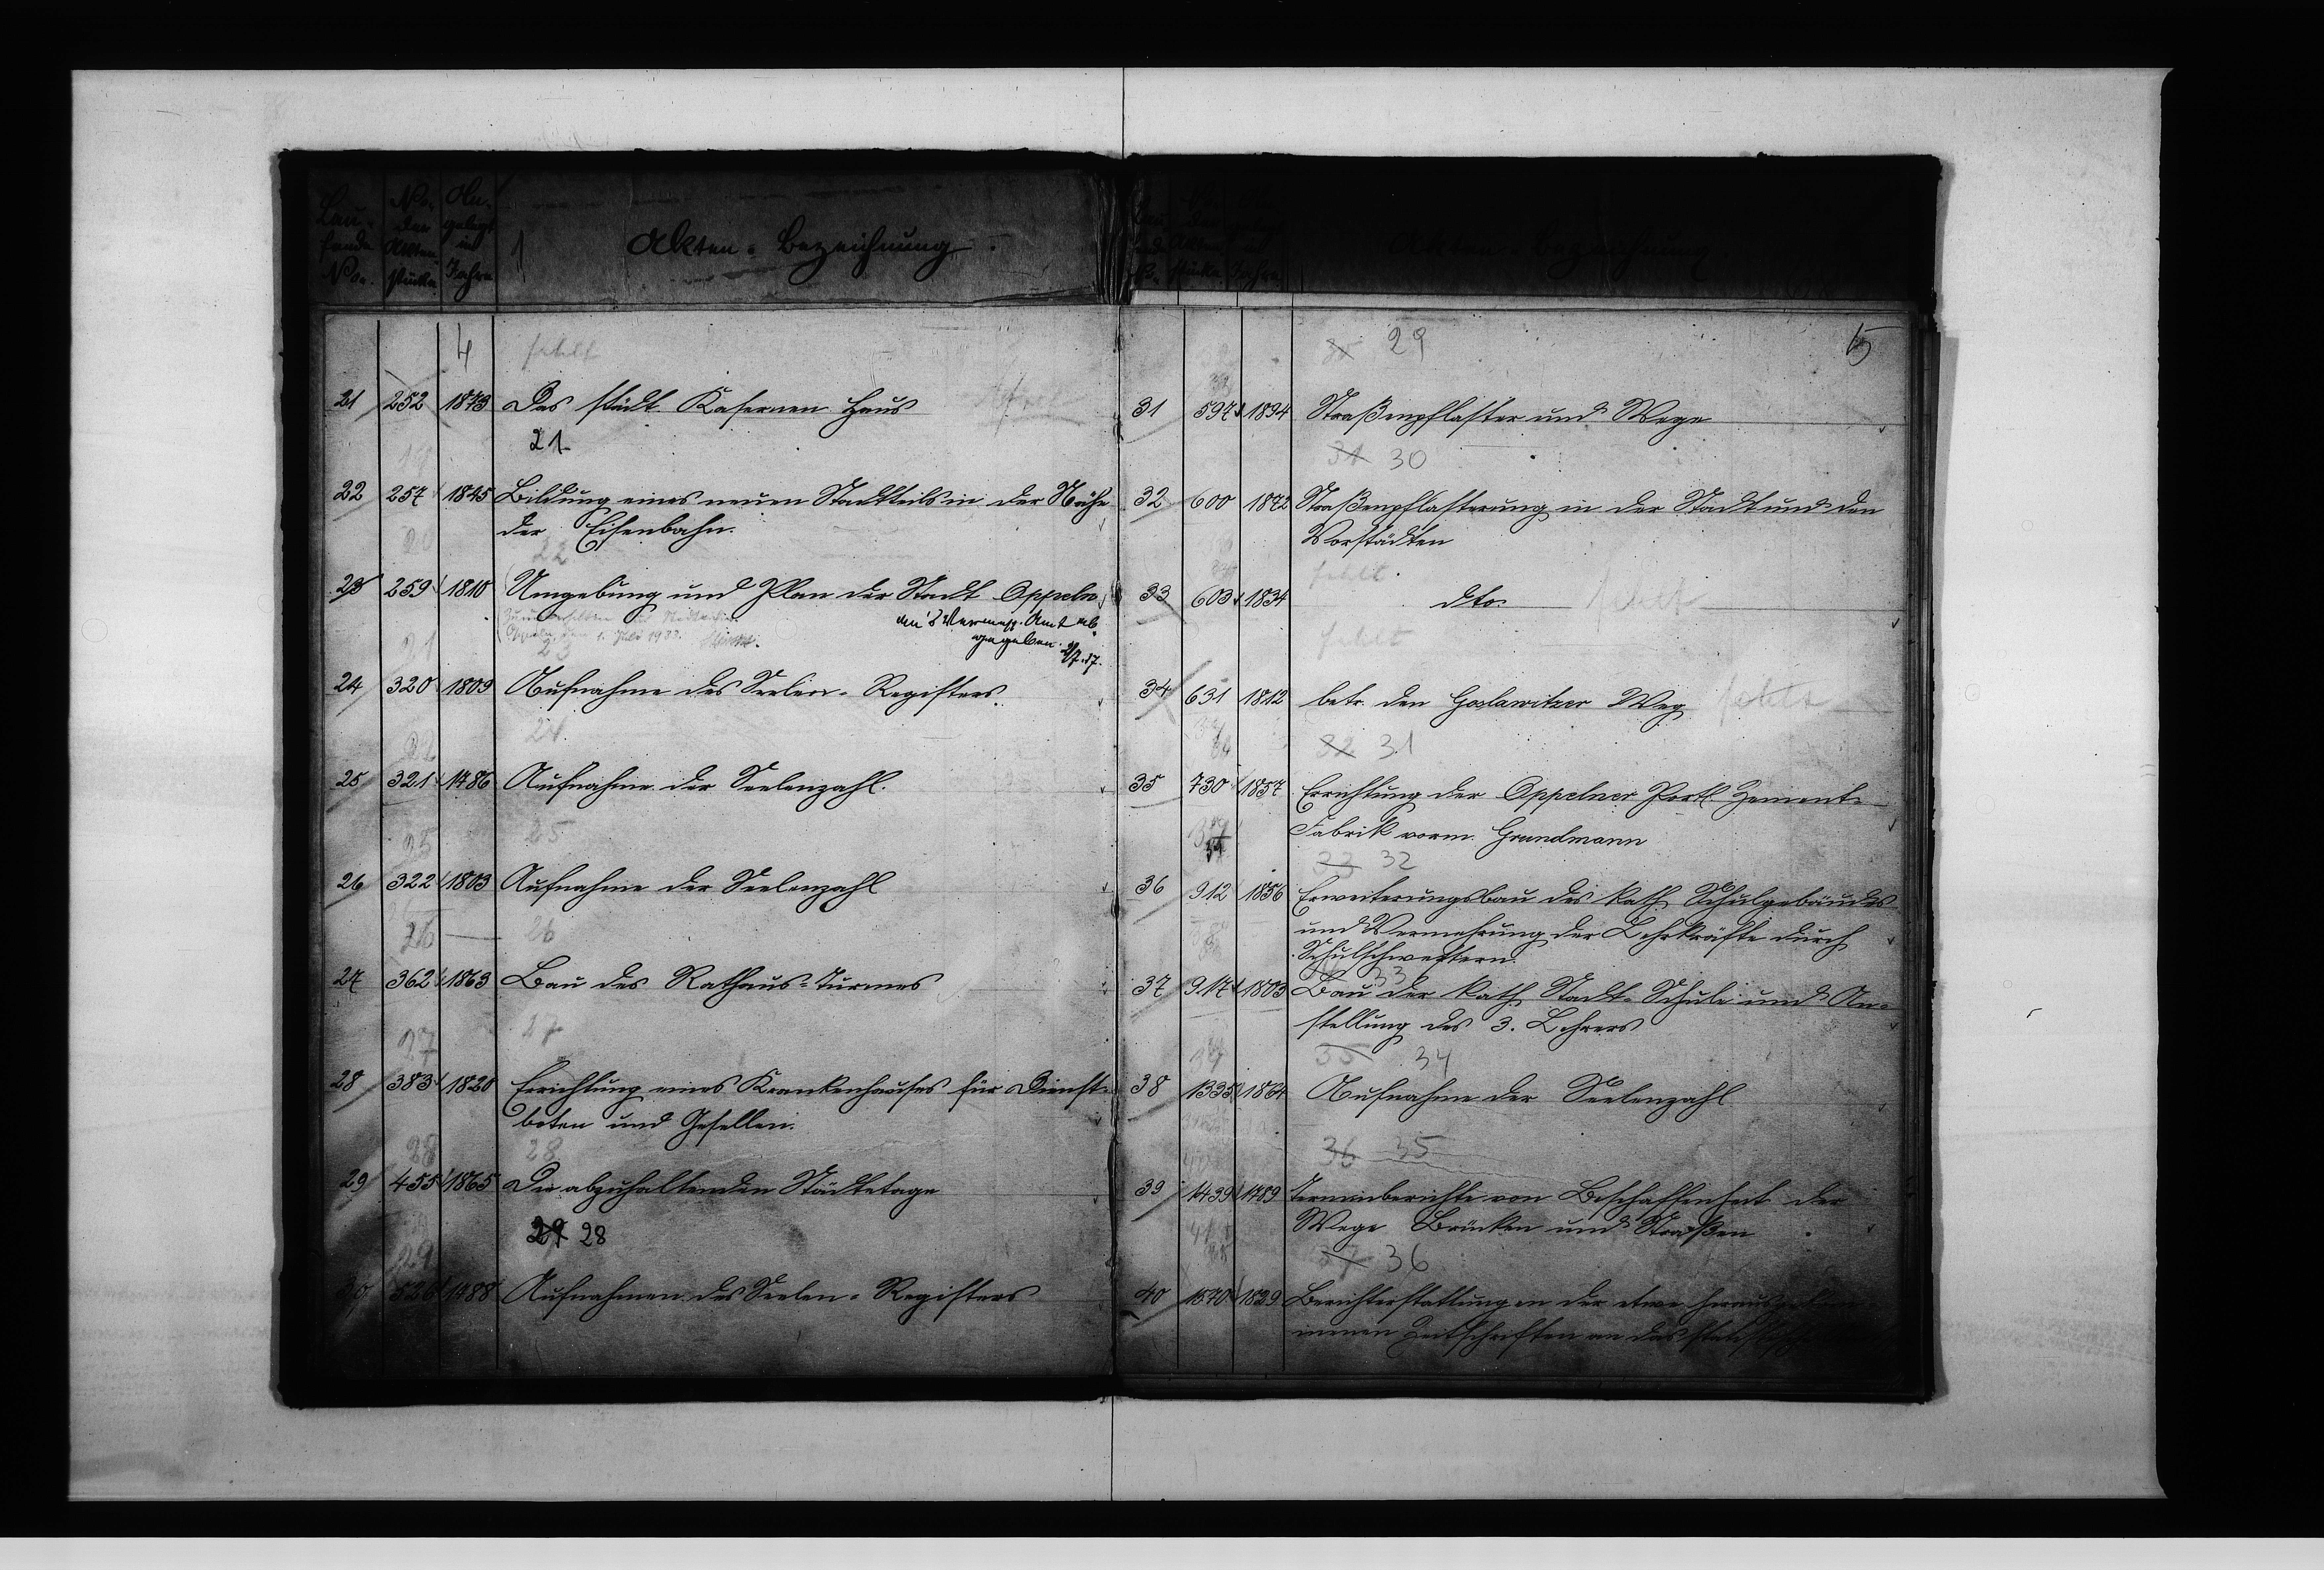 Lau-
fende
No.
No.
der
Akten-
stücke.
An-
gelegt
im
Jahre
1
Akten-Bezeichnung.
4
fehlt
21 252 1873 Das städt. Kasernen Haus
21
18
22 257 1845 Bildung eines neuen Stadtteils in der Nähe
der Eisenbahn.
20
22
23 259 1810 Umgebung und Plan der Stadt Oppeln
an's Vermess. Amt ab-
gegeben.
Oppeln, den 1. Juli 1933.
21
23
24 320 1809 Aufnahme des Seelen-Registers.
22
24
25 321 1786 Aufnahme der Seelenzahl.
25
25
26 322 1803 Aufnahme der Seelenzahl
26
26
27 362 1863 Bau des Rathaus-Turmes
27
27
28 383 1820 Errichtung eines Krankenhauses für Dienst-
boten und Gesellen.
28
28
29 455 1865 Die abzuhaltenden Städtetage
29
29 28
30 526 1788 Aufnahmen des Seelen-Registers
Akten-Bezeichnung
5
30 29
31 597 1894 Straßenpflaster und Wege
31 30
32 600 1872 Straßenpflasterung in der Stadt und den
Vorstädten
fehlt
33 603 1834 dto. fehlt
fehlt
34 631 1812 betr. den Goslawitzer Weg fehlt
32 31
35 730 1857 Errichtung der Oppelner Portl. Zement-
Fabrik vorm. Grundmann
33 32
36 912 1856 Erweiterungsbau des kath. Schulgebäudes
und Vermehrung der Lehrkräfte durch
Schulschwestern.
33
37 917 1803 Bau der kath. Stadt-Schule und An-
stellung des 3. Lehrers
35 34
38 1335 1864 Aufnahme der Seelenzahl
36 35
39 1439 1789 Terminberichte von Beschaffenheit der
Wege Brücken und Straßen
37 36
40 1570 1829 Berichterstattung der etwa
Zeitschriften an das